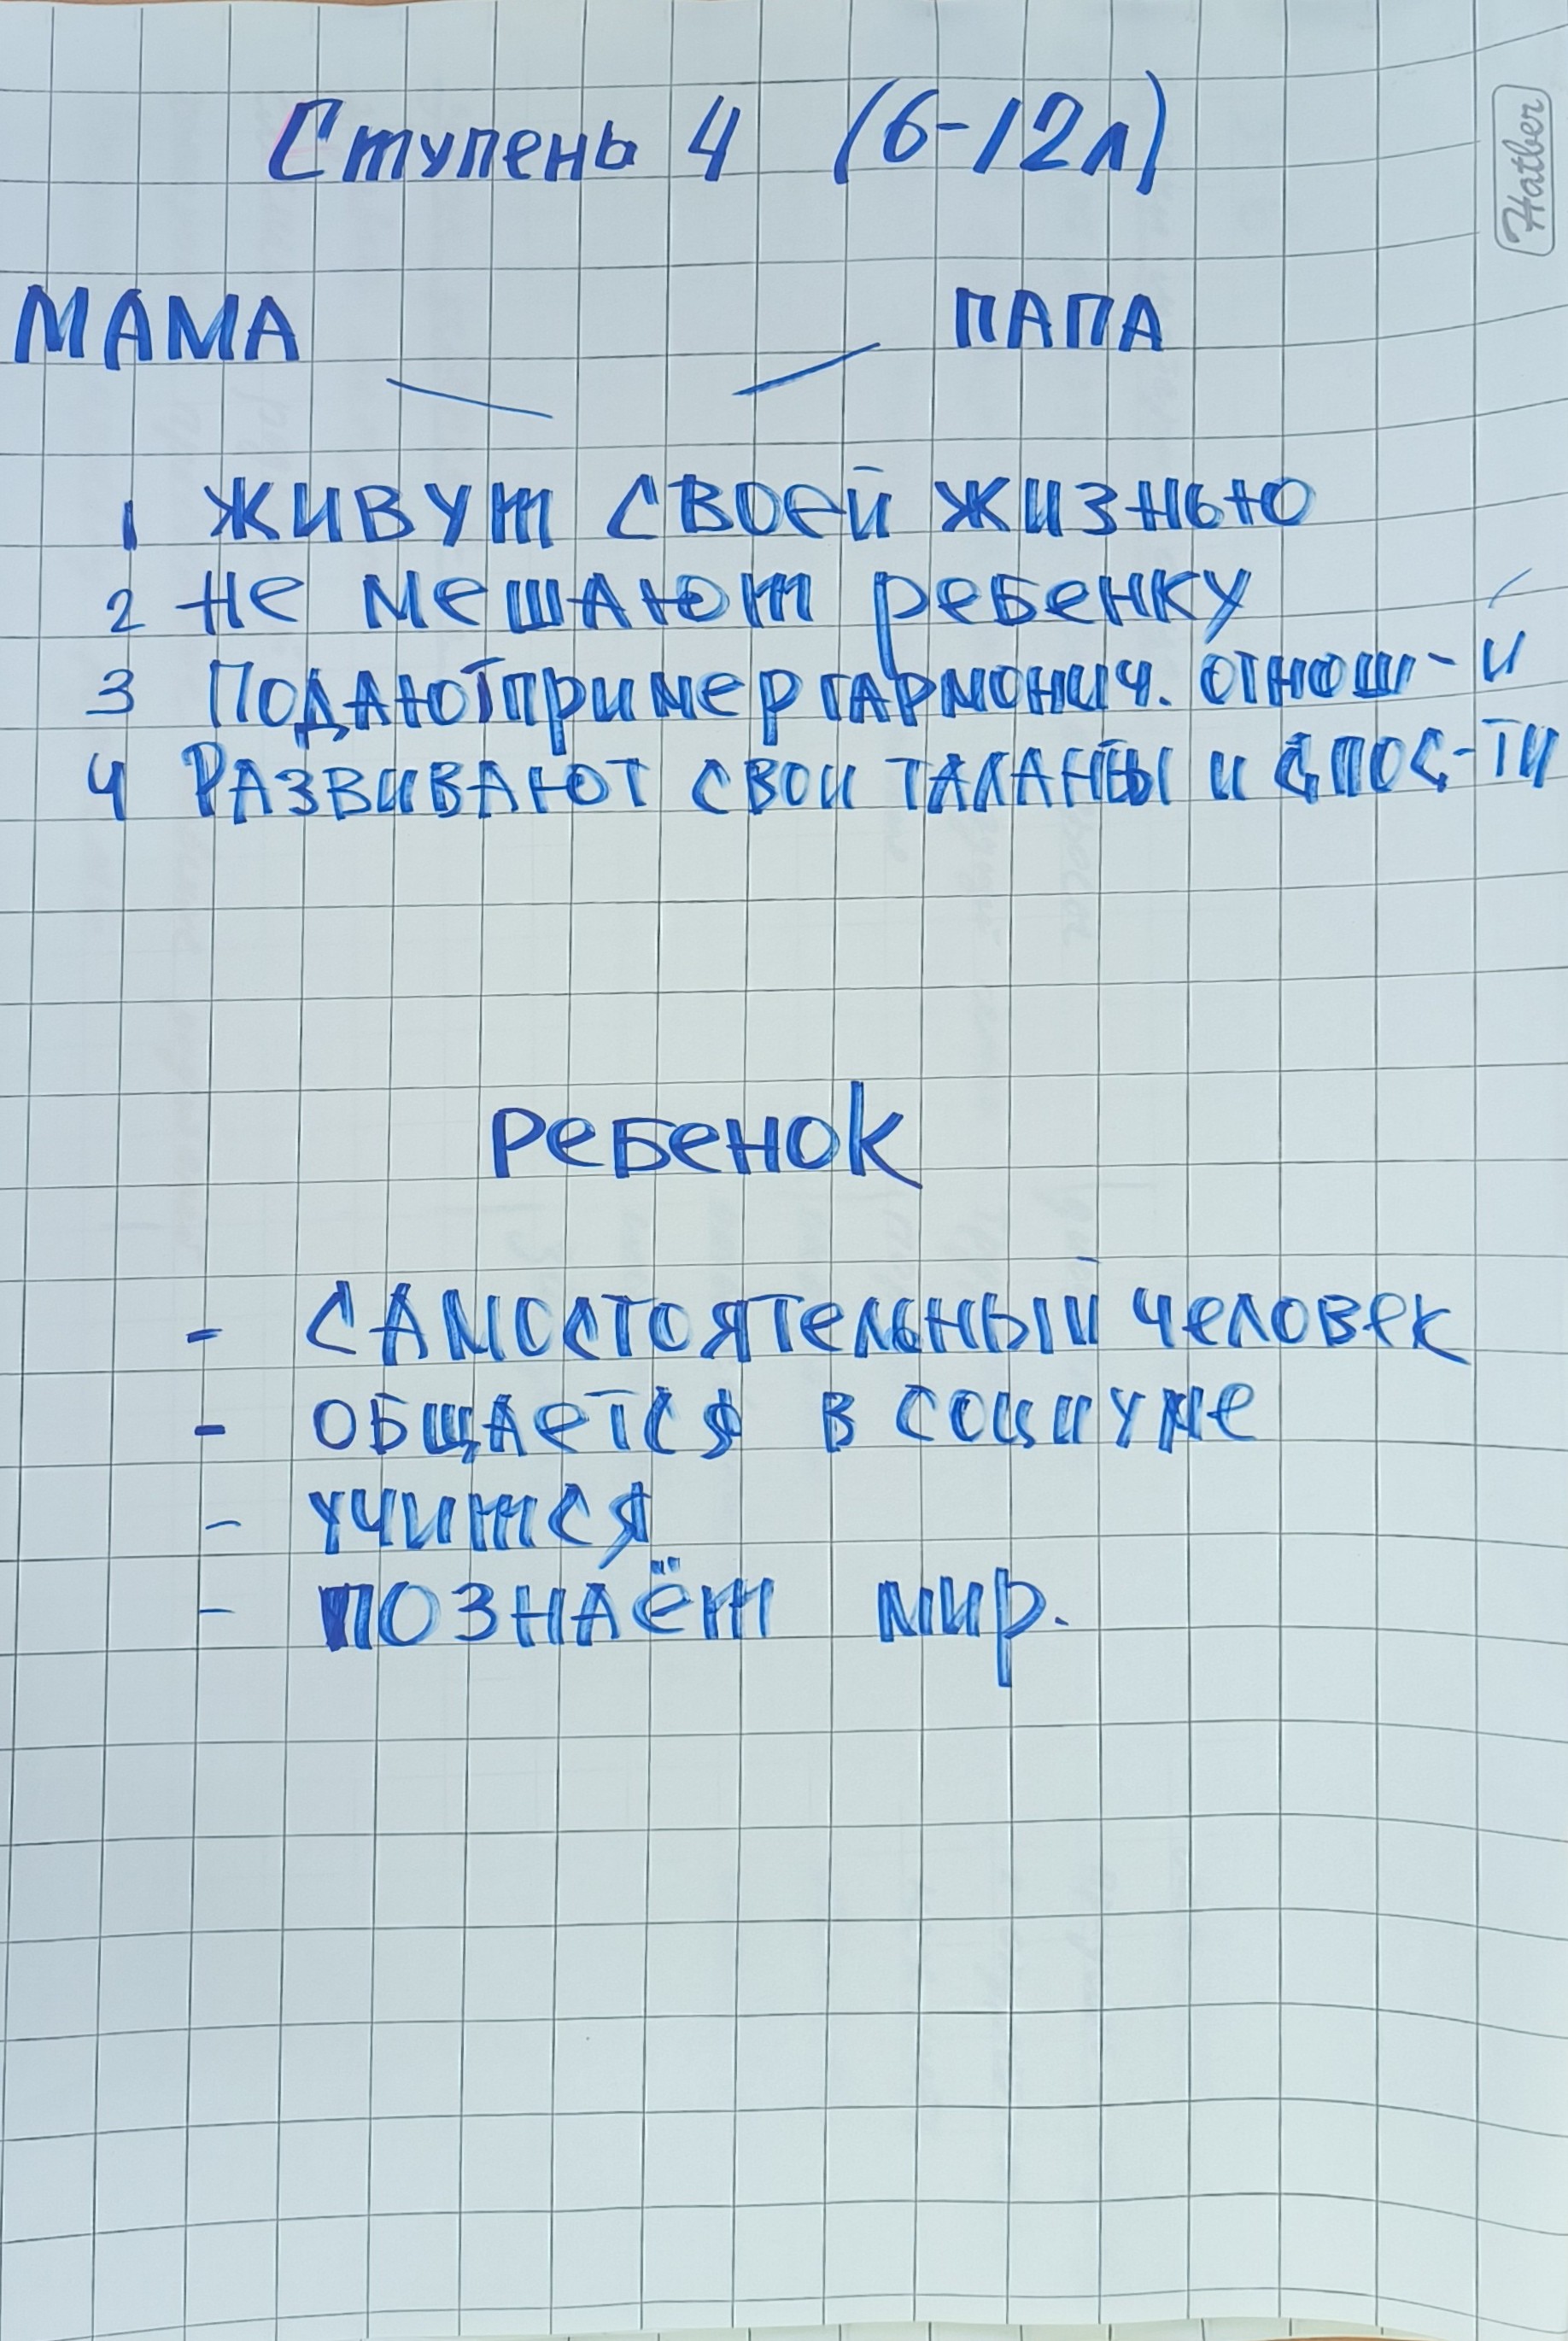 Ступень 4 (6-12л)
Hatber
МАМА ПАПА
1 Живут своей жизнью
2 Не мешают ребенку
3 Подают пример гармонич. отнош-й
4 Развивают свои таланты и спос-ти
Ребенок
- Самостоятельный человек
- общается в социуме
- учится
- познаёт мир.